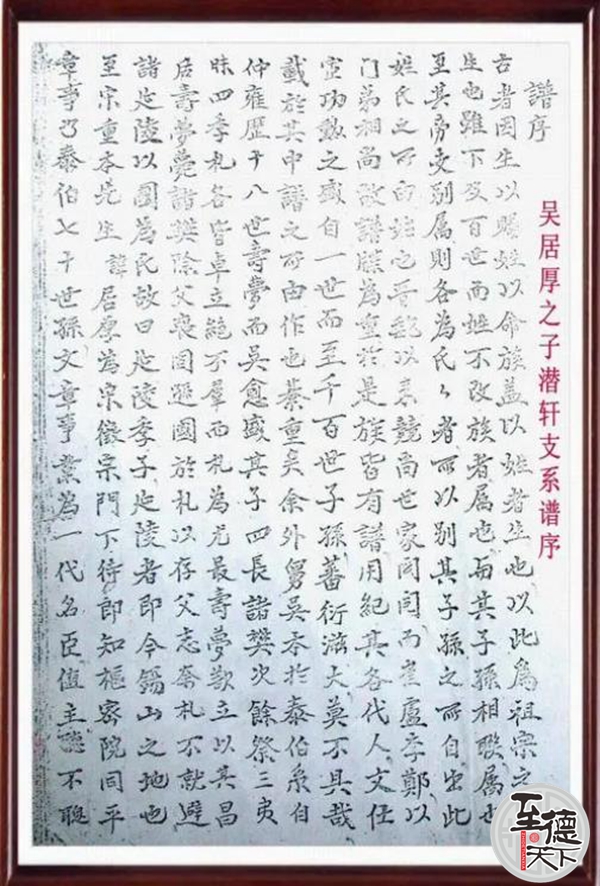 吴居厚之子潜轩支系谱序
譜序
古者因生以賜姓以命族盖以姓者生也以此為祖宗之
生也雖下及百世而姓不改族者属也而其子孫相聯属也
至其旁支别属則各為氏々者所以别其子孫之所自出此
姓氏之所由姓之晋魏以来競尚世家閥閲而崔盧李鄭以
门弟相尚故譜牒為重於是族皆有譜用紀其各代人文仕
宦功勲之盛自一世而至千百世子孫蕃衍滋大莫不具哉
載於其中譜之所由作也綦重矣余外舅吴本於泰伯系自
仲雍歴十八世壽夢而吴愈盛其子四長諸樊次餘祭三夷
昧四季札各皆卓立絶不羣而札為尤最壽夢欲立以其昌
后壽夢薨諸樊除父喪囙遜國於札以存父志奈札不就避
諸延陵以國為氏故曰延陵季子延陵者即今錫山之地也
至宗重本先生諱居厚為宋徽宗門下待即知樞密院同平
章事乃泰伯七十世孫文章事業為一代名臣值主聽不聰
至德天下